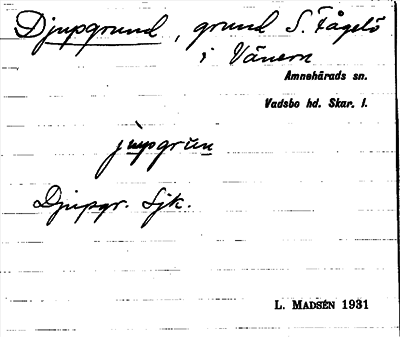 Djupgrund, grund S. Fågelö
i Vänern
Amnehärads sn.
Vadsbo hd. Skar. l.
jupgrun
Djupgr. Sjk.
L. MADSÉN 1931